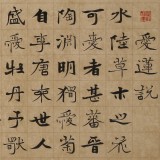 愛蓮說
水陸草木之花
可愛者甚蕃晉
陶淵明獨愛菊
自李唐來世人
盛愛牡丹予獨